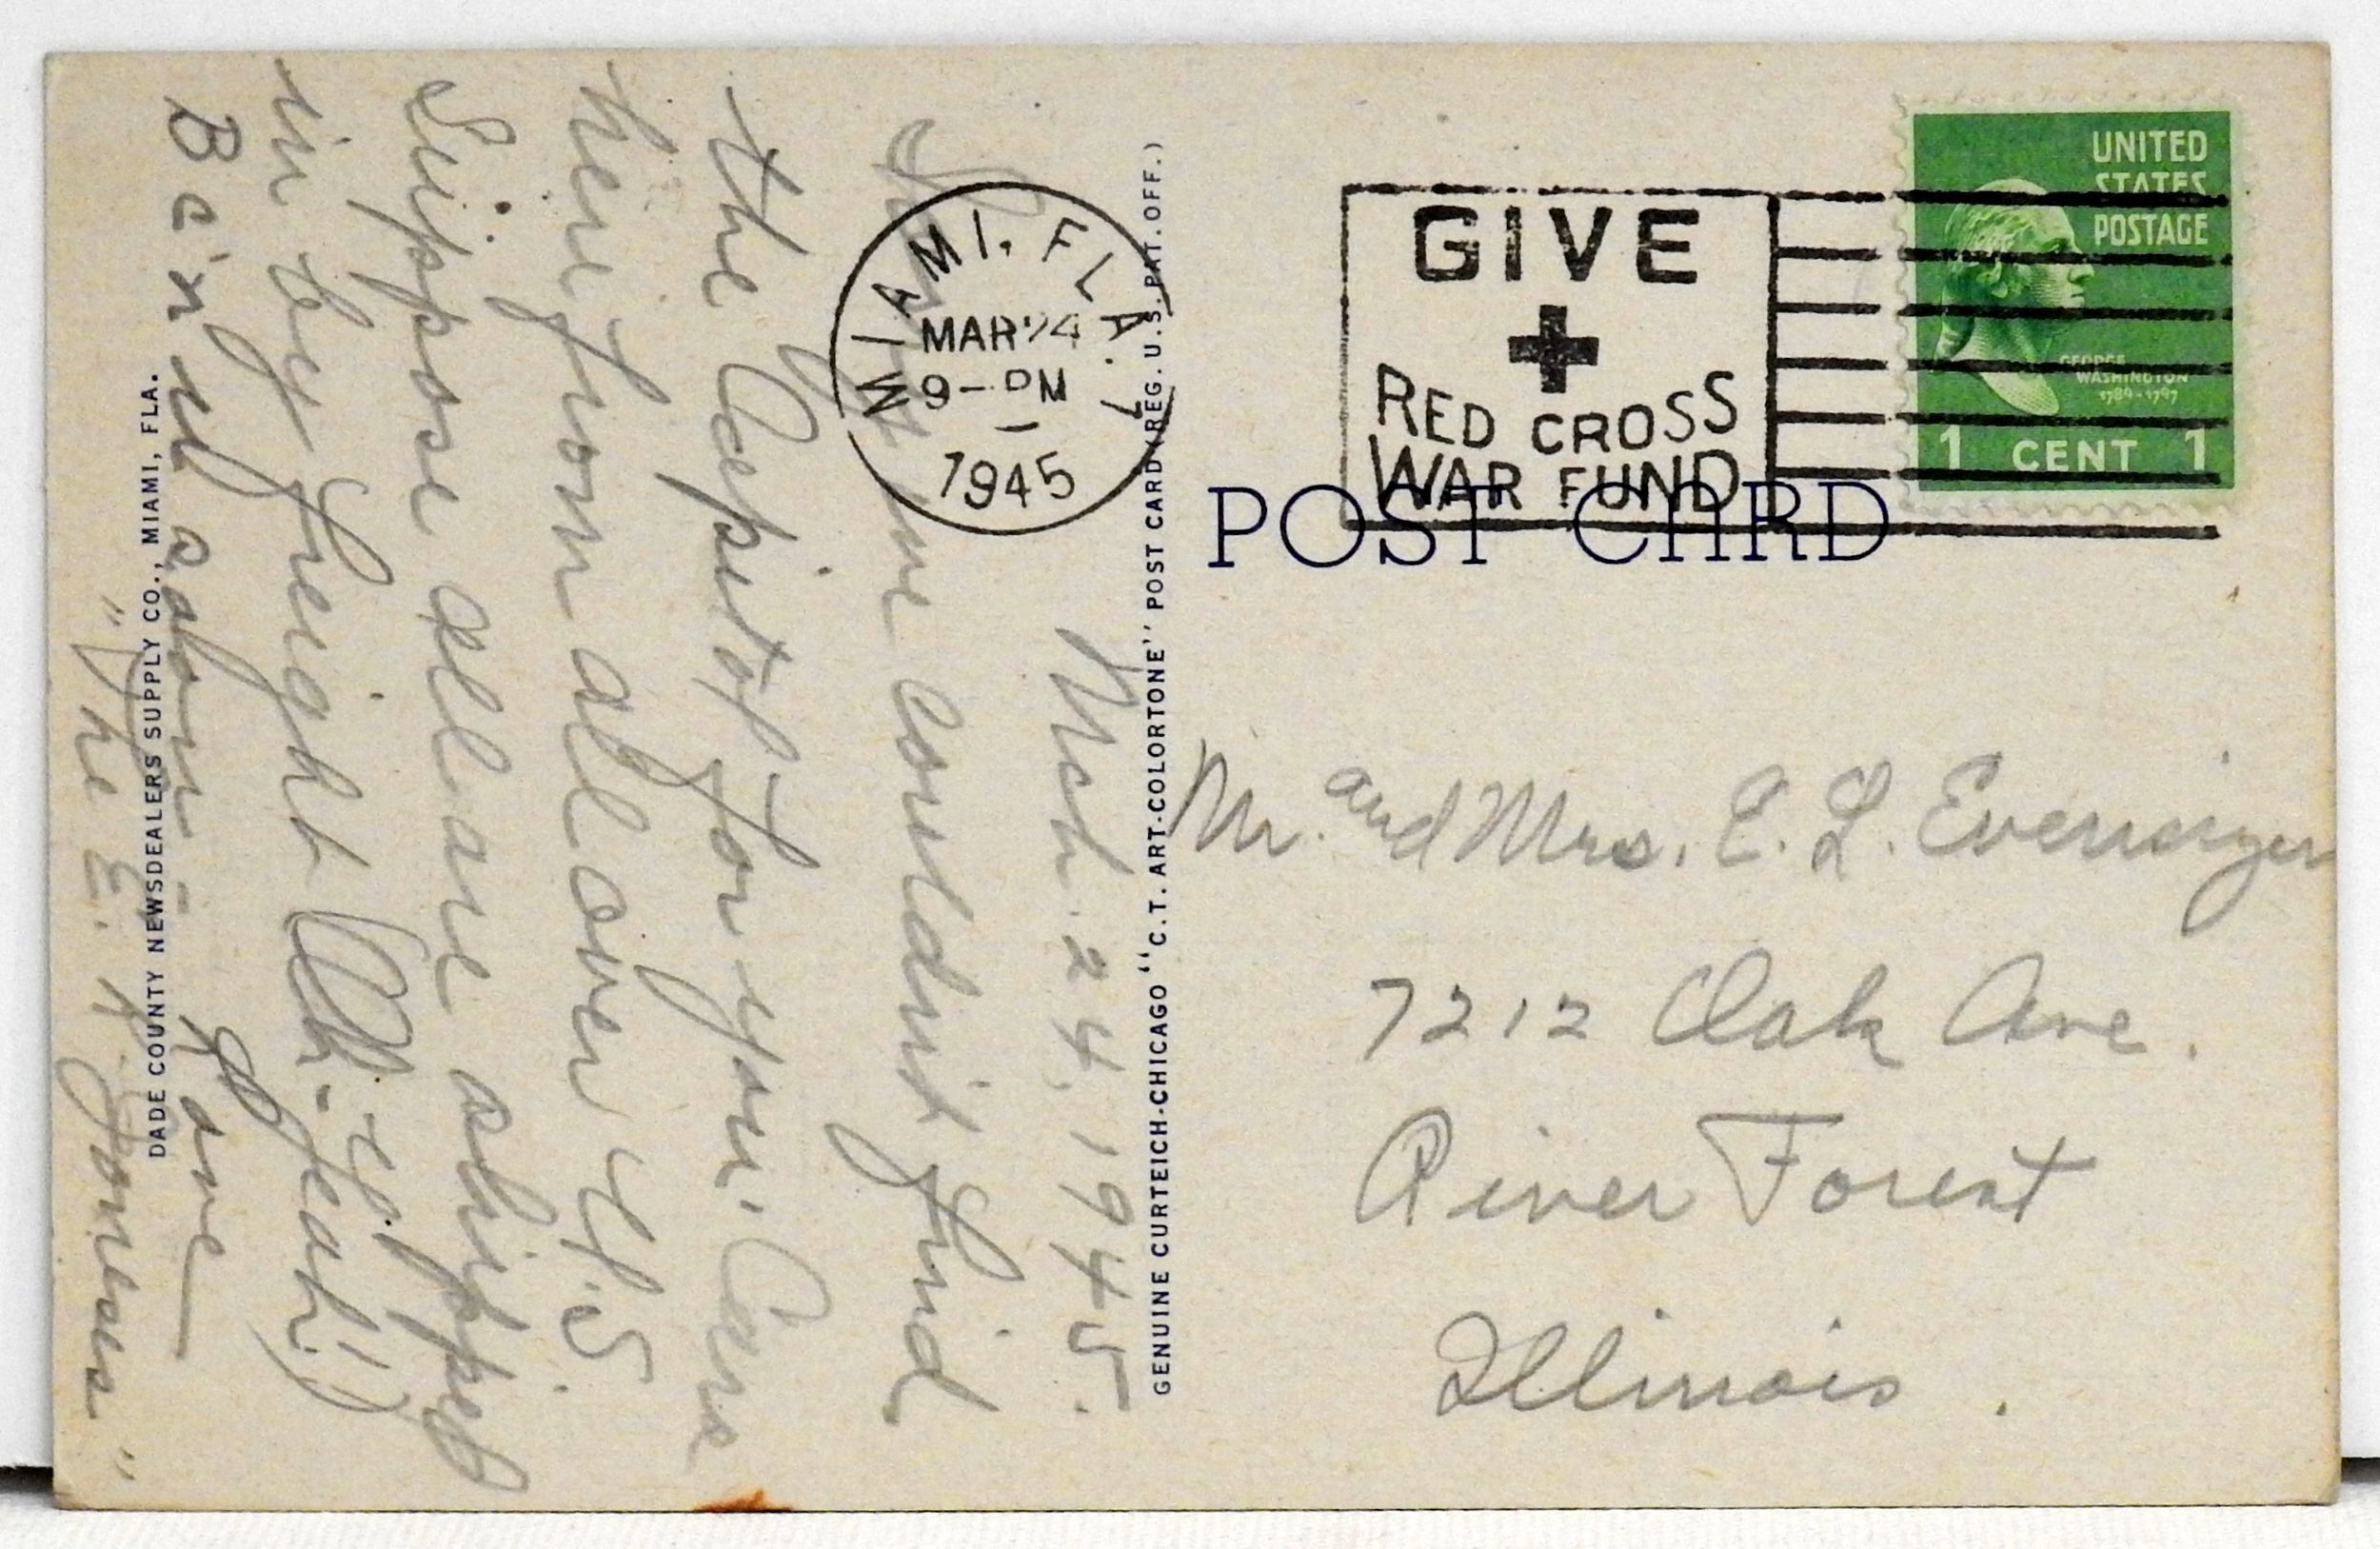 Mch. 24, 1945.
we couldn't find
the Capitol for you. Cars
here from all over U.S.
Suppose all are shipped
in by freight (Oh-yeah!!)
Be'n us soon - Love
"The E. A. Joneses"
DADE COUNTY NEWSDEALERS SUPPLY CO., MIAMI, FLA.
GENUINE CURTEICH-CHICAGO "C.T. ART-COLORTONE" POST CARD (REG. U.S. PAT. OFF.)
MIAMI, FLA.
MAR 24
9 - PM
1945
GIVE
RED CROSS
WAR FUND
UNITED
STATES
POSTAGE
GEORGE
WASHINGTON
1789-1797
1 CENT 1
POST CARD
Mr. and Mrs. E. L. Evensizer
7212 Oak Ave.
River Forest
Illinois.